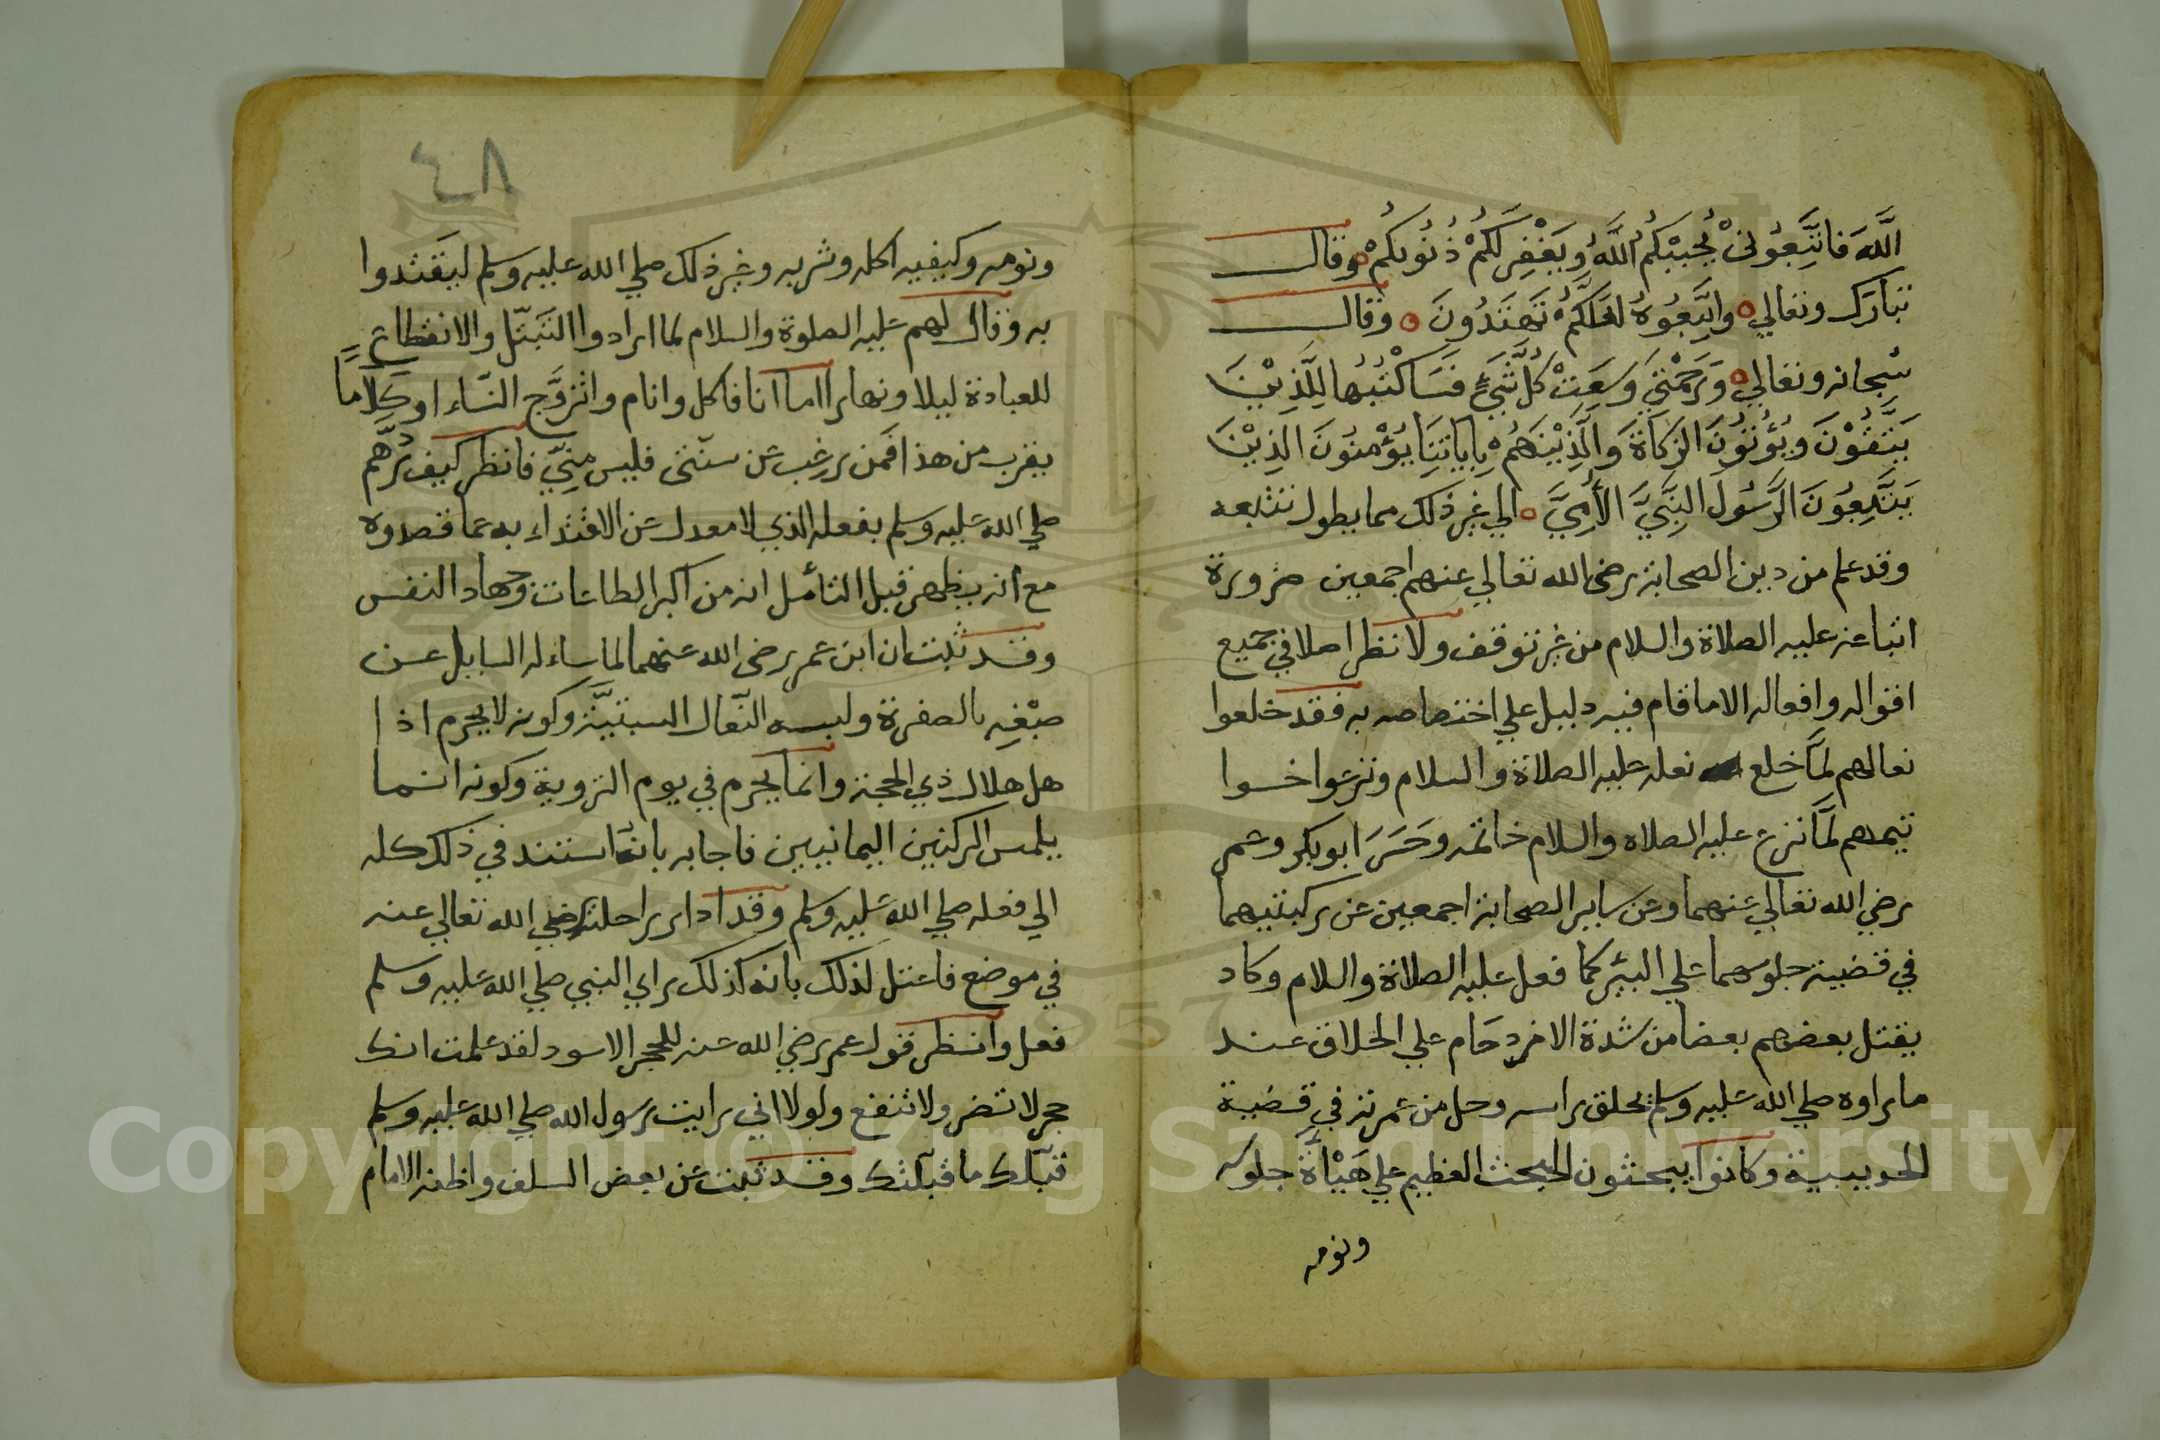 اللَّهَ فَاتَّبِعُونِىْ يُحْبِبْكُمُ اللَّهُ وَيَغْفِرْ لَكُمْ ذُنُوبَكُمْ وقال
تبارك وتعالي وَاتَّبِعُوهُ لَعَلَّكُمْ تَهْتَدُونَ وقال
سبحانه وتعالي وَرَحْمَتِيْ وَسِعَتْ كُلَّ شَيْءٍ فَسَأَكْتُبُهَا لِلَّذِيْنَ
يَتَّقُوْنَ وَيُؤْتُوْنَ الزَكَاةَ وَالَّذِيْنَ هُمْ بِايَاتِنَا يُؤْمِنُونَ الذِيْنَ
يَتَّبِعُوْنَ الرَّسُولَ النَّبِيَّ الأُمِّيَّ الي غير ذلك مما يطول تتبعه
وقد علم من دين الصحابة رضى الله تعالي عنهم اجمعين ضرورة
اتباعه عليه الصلاة والسلام من غير توقف ولا نظر اصلا في جميع
اقواله وافعاله الا ما قام فيه دليل علي اختصاصه به فقد خلعوا
نعالهم لمّا خلع نعله عليه الصلاة والسلام ونزعوا خوا
تيمهم لمّا نزع عليه الصلاه والسلام خاتمه وحَسَرَ ابوبكر وعمر
رضي الله تعالي عنهما وعن ساير الصحابة اجمعين عن ركبتيهما
في قضية جلوسهما علي البئر كما فعل عليه الصلاة والسلام وكاد
يقتل بعضهم بعضا من شدة الازدحام علي الحلاق عند
ما راوه صلي الله عليه وسلم يحلق راسه وحل من عمرته في قضية
الحديبية وكانوا يبحثون البحث العظيم علي هَيْأة جلوسه
ونومه
٤٨
ونومه وكيفيه اكله وشربه وغير ذلك صلي الله عليه وسلم ليقتدوا
به وقال لهم عليه الصلوة والسلام لما ارادوا التَبَتّل والانقطاع
للعبادة ليلا ونهارا اما انا فاكل وانام واتزوَّج النّساء او كلامًا
يقرب من هذا فمن رغب عن سنّتى فليس منِّي فانظر كيف رَدّهم
صلي الله عليه وسلم بفعله الذي لا معدل عن الاقتداء به عما قصدوه
مع انه يظهر قبل التأمل انه من اكبر الطاعات وجهاد النفس
وقد ثبت ان ابن عمر رضى الله عنهما لما ساءله السايل عن
صبْغِه بالصفرة ولبسه النّعال السبتيَّة وكونه لا يحرم اذا
هل هلال ذي الحجة وانما يحرم في يوم التروية وكونه انما
يلمس الركنين اليمانيين فاجابه بانه استند في ذلك كله
الي فعله صلي الله عليه وسلم وقد ادار راحلته رضي الله تعالي عنه
في موضع فاعتل لذلك بانه كذلك راي النبي صلي الله عليه وسلم
فعل وانظر قول عمر رضي الله عنه للحجر الاسود لقد علمت انك
حجر لا تضر ولا تنفع ولولا اني رايت رسول الله صلي الله عليه وسلم
قبّلك ما قبّلتك وقد ثبت عن بعض السلف واظنه الامام
Copyright © King Saud University
1957